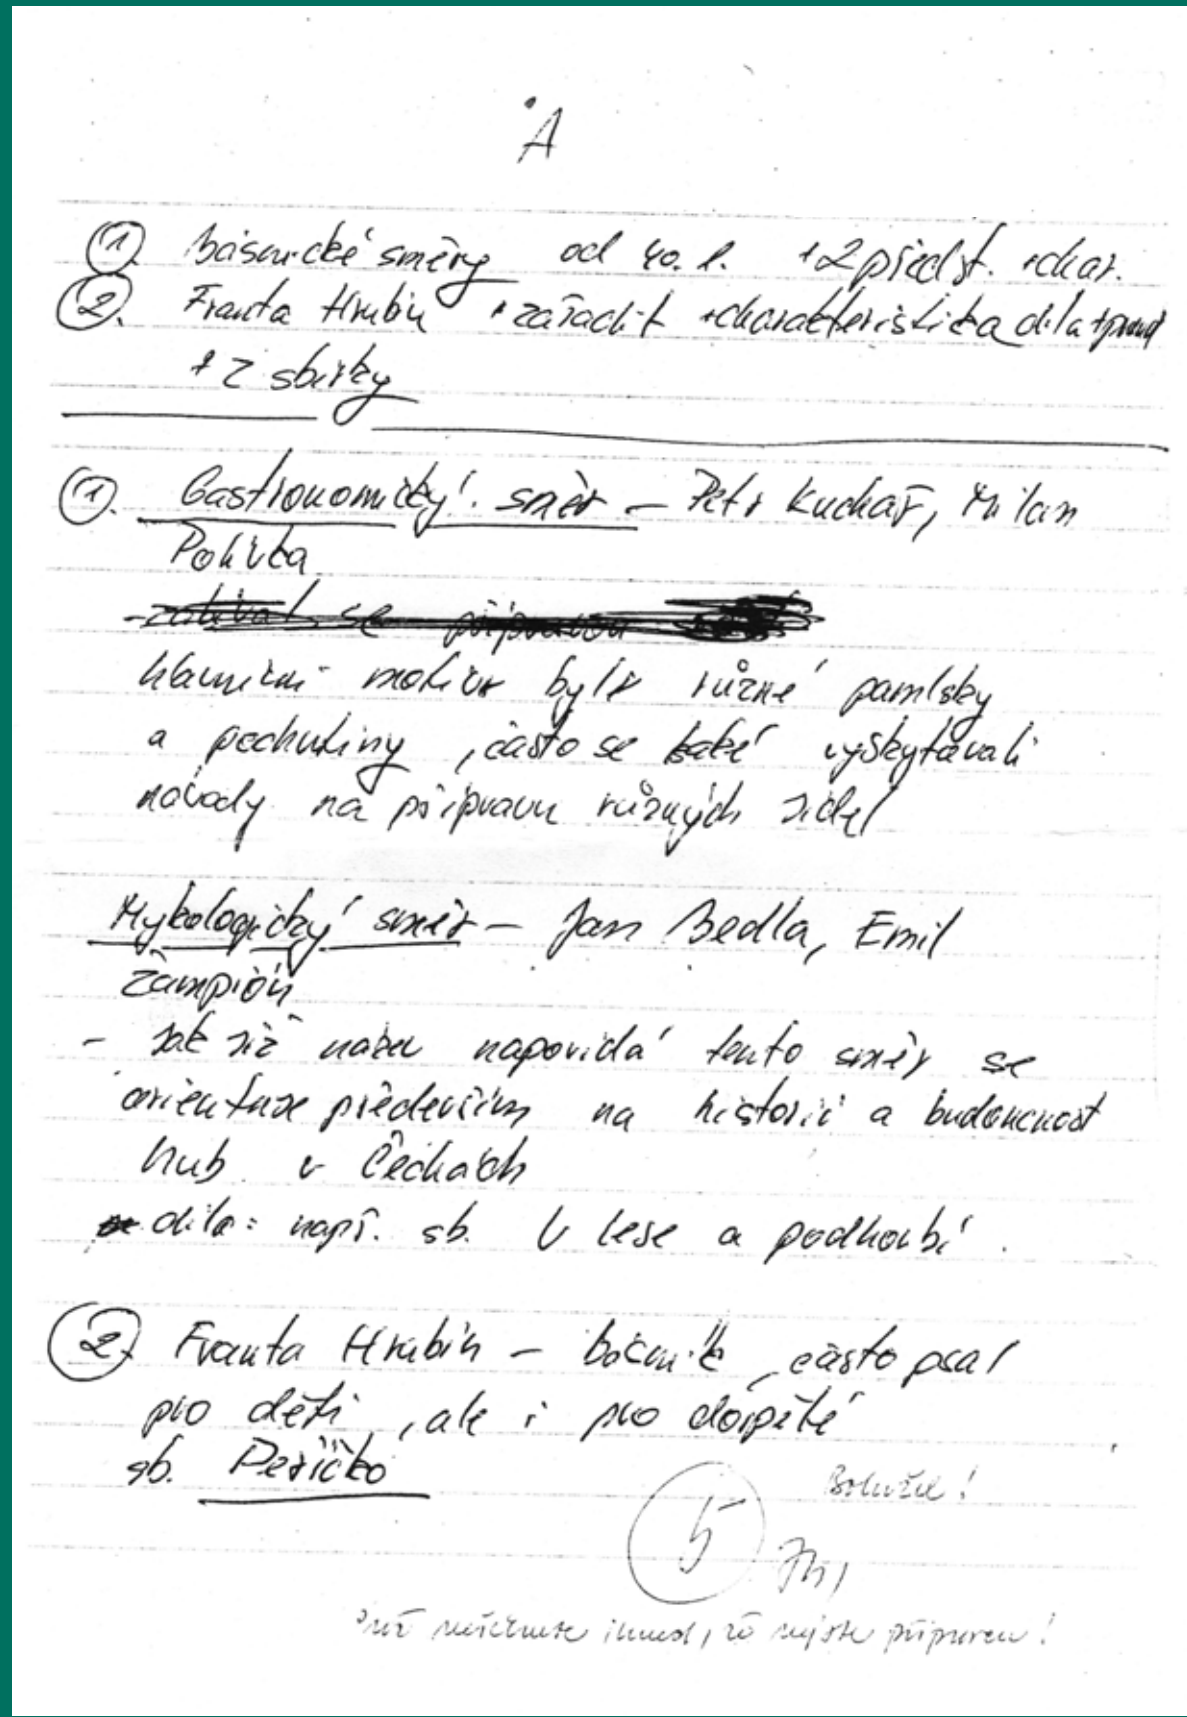 A
1. Básnické směry od 40. l. +2 předst. +char.
2. Franta Hrubín +zařadit +charakteristika díla
+ 2 sbírky
1. Gastronomický směr – Petr Kuchař, Milan
Polívka
hlavními motivy byly různé pamlsky
a pochutiny, často se také vyskytávali
návody na přípravu různých jídel
Mykologický směr – Jan Bedla, Emil
Žampión
- jak již název napovídá tento směr se
orientuje především na historii a budoucnost
hub v Čechách
díla: např. sb. V lese a podhoubí.
2. Franta Hrubín – básník, často psal
pro děti, ale i pro dospělé
sb. Peříčko
Bohužel!
5
imned, že nejste připraven!